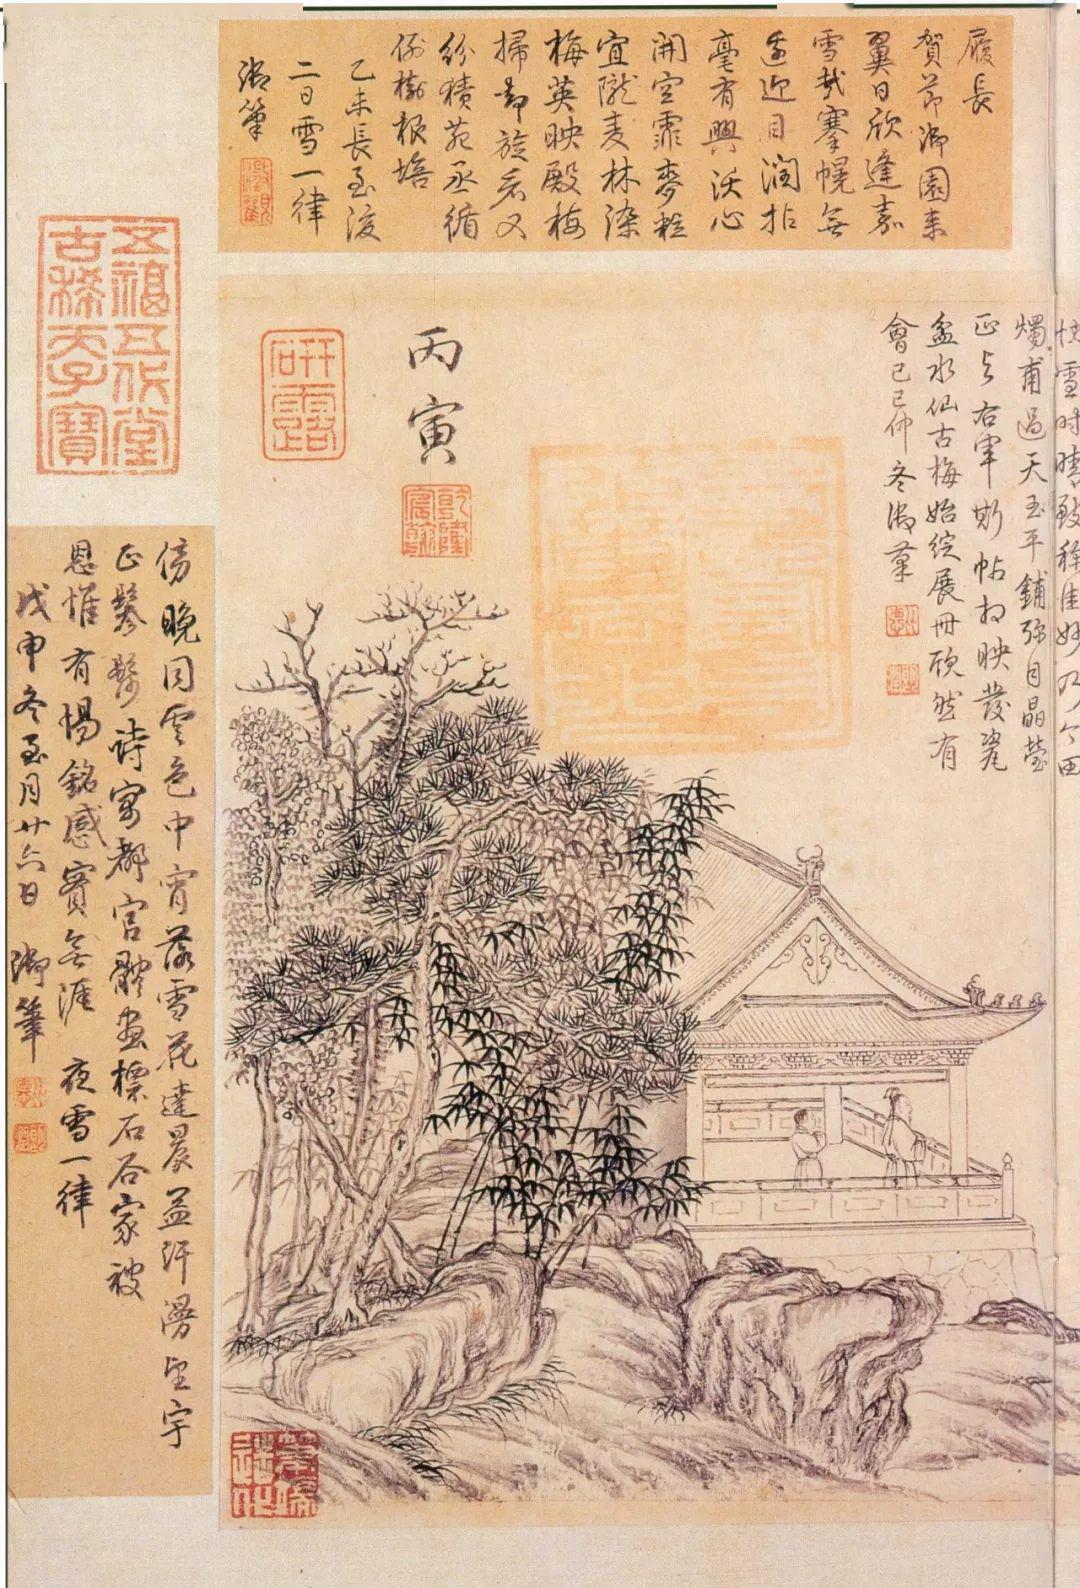 履長
賀節御園來
翼日欣逢嘉
雪哉搴幌無
遙迎目潤拈
毫有興沃心
開空霏麥粒
宜隴麦林染
梅英映殿梅
掃却旋看又
紛積苑丞循
例樹根培
乙未長至後
二日雪一律
御筆
快雪時晴
燭甫過天玉平鋪弥目晶瑩
正与右軍斯帖相映發瓷
盆水仙古梅始綻展冊欣然有
會己巳仲冬御筆
丙寅
乾隆宸翰
研露
五福五代堂古稀天子寶
傍晚同雲色中宵落雪花達晨益汗漫望宇
正鬖髿詩寓都官體畫標石谷家被
恩惟有惕銘感實無涯 夜雪一律
戊申冬至月廿六日 御筆